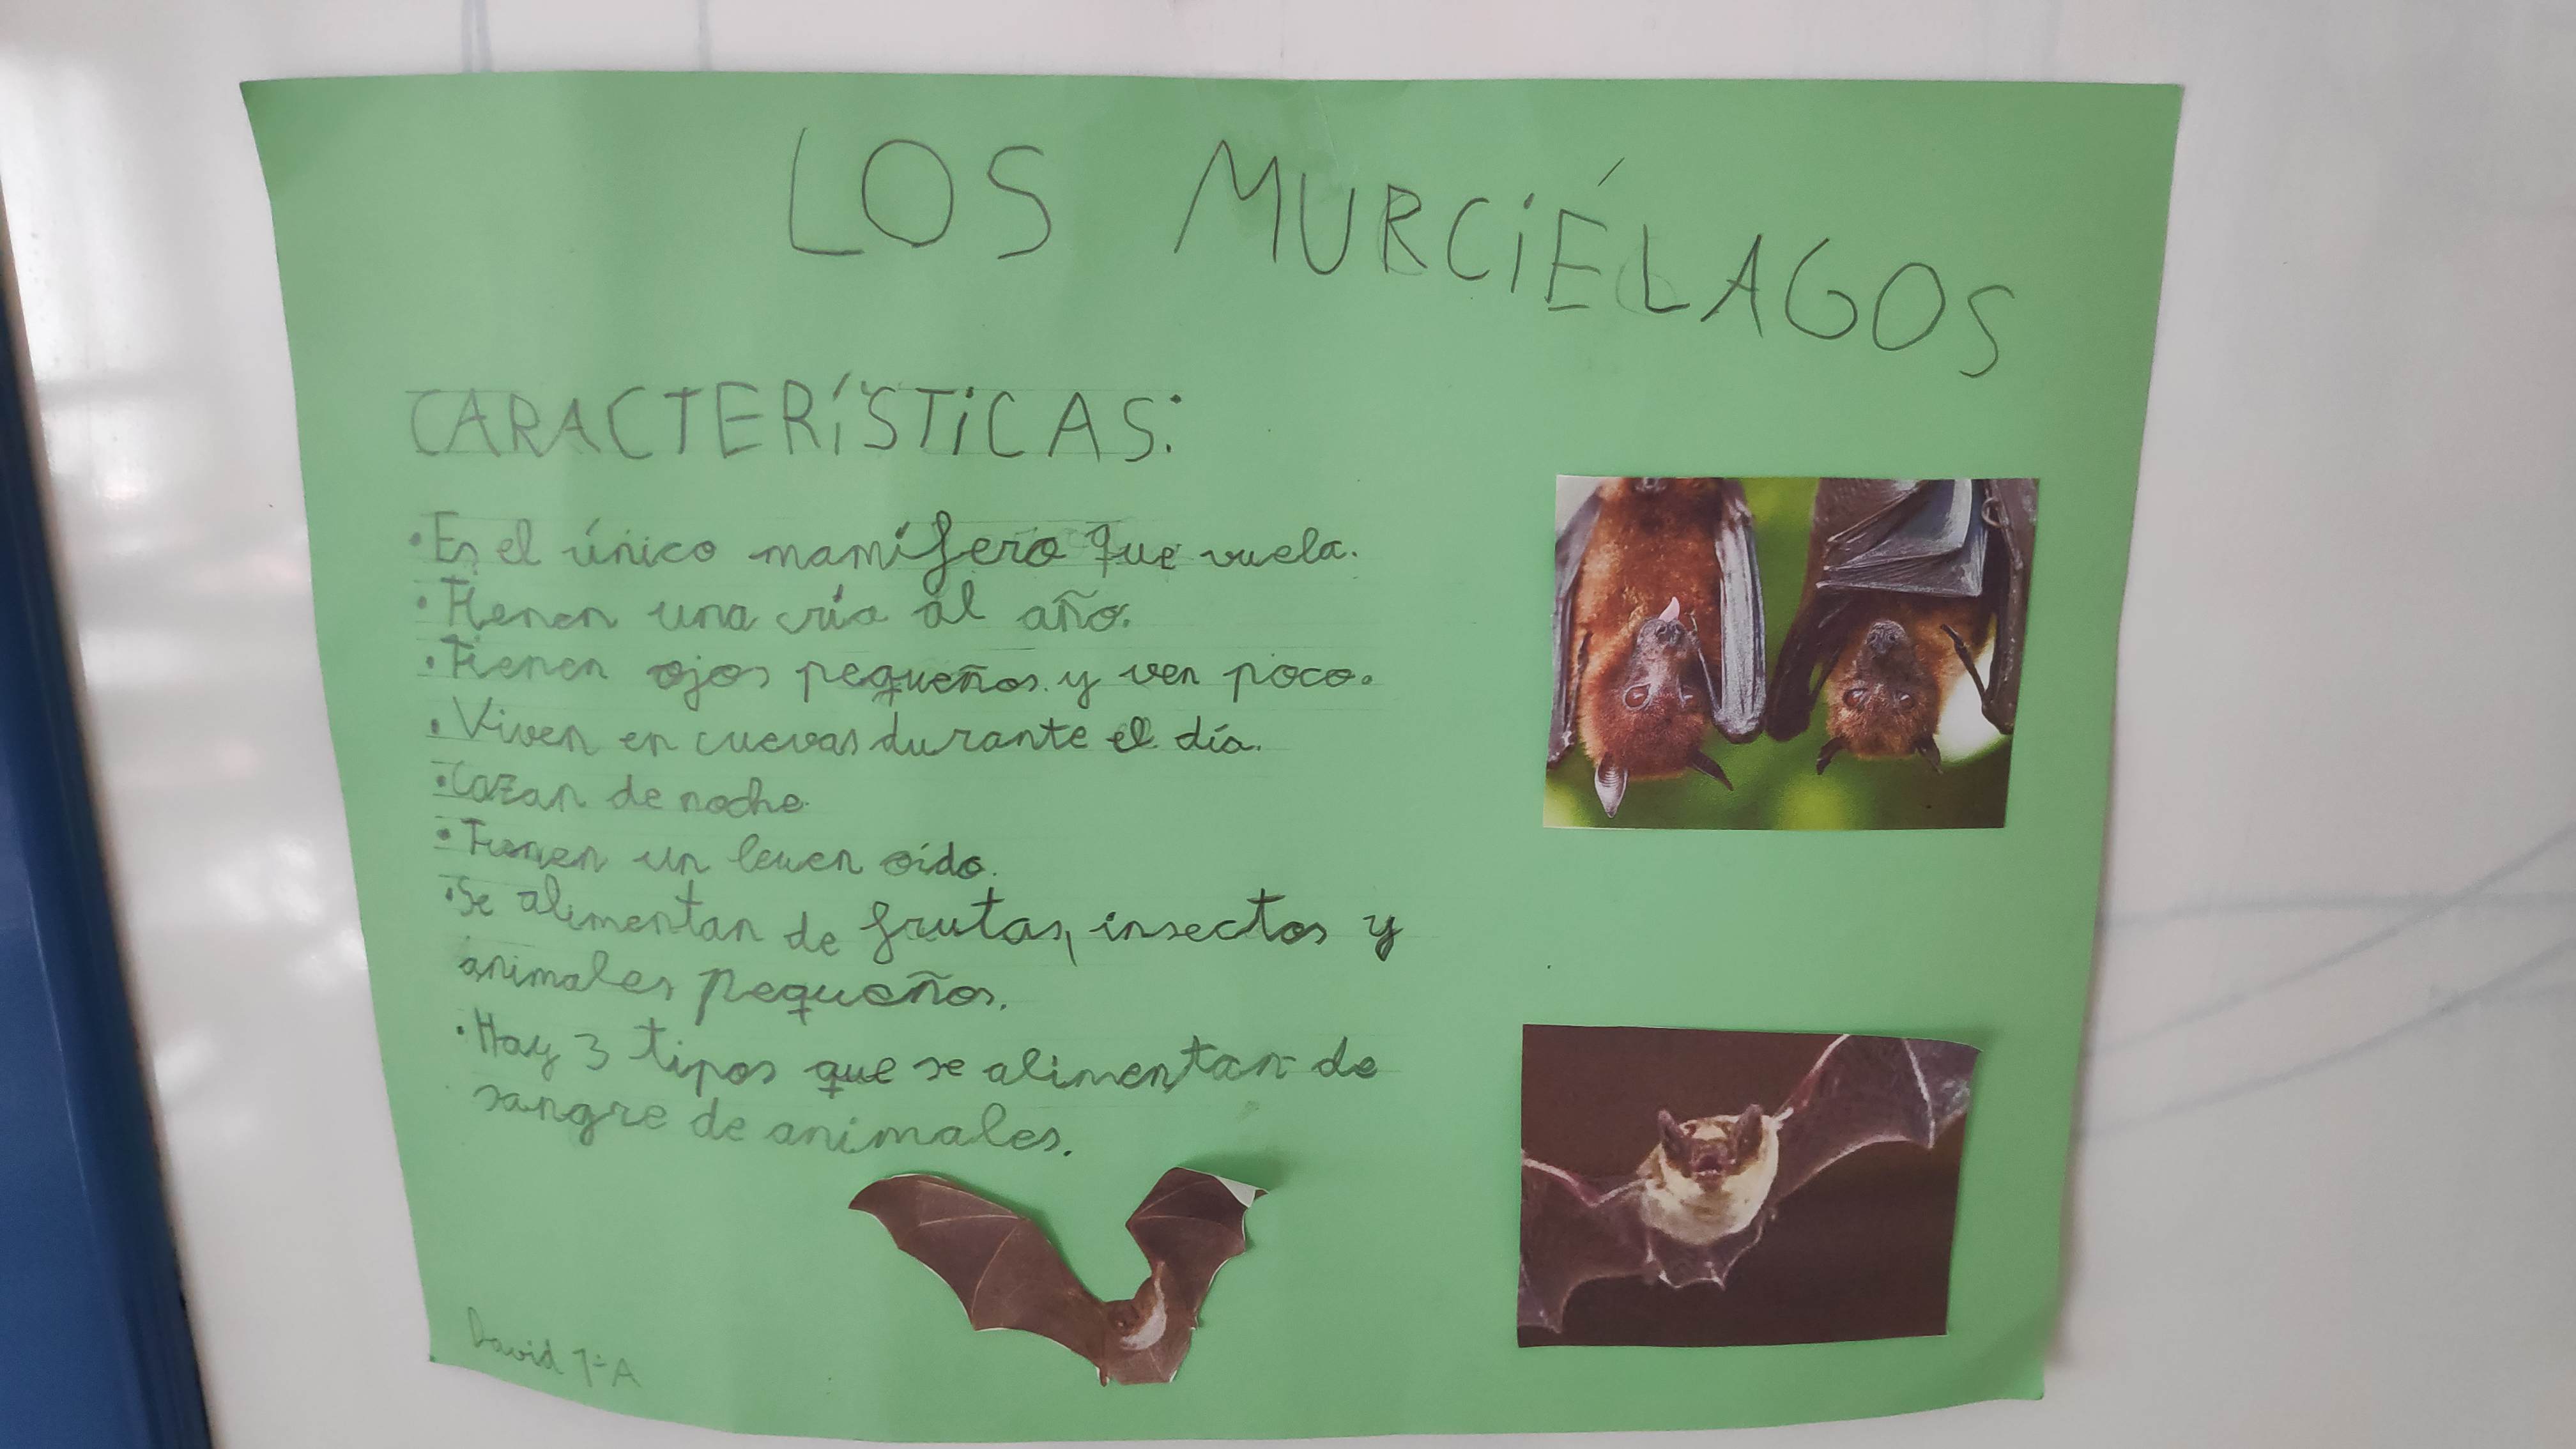 LOS MURCIÉLAGOS
CARACTERÍSTICAS:
• Es el único mamífero que vuela.
• Tienen una cría al año.
• Tienen ojos pequeños y ven poco.
• Viven en cuevas durante el día.
• Cazan de noche.
• Tienen un buen oído.
• Se alimentan de frutas, insectos y
animales pequeños.
• Hay 3 tipos que se alimentan de
sangre de animales.
David 1ºA